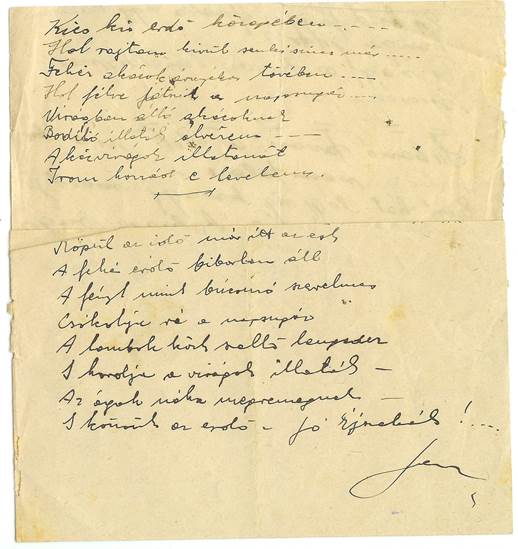 Kics kis erdő közepében - - - -
Hol rajtam kívül senkisincs már - - - -
Fehér akácok árnyékos tövében - - -
Hol félve játszik a napsugár - - -
Virágban álló akácoknak
Bódító illatát élvezem - - -
Akácvirágok illatanát
Irom hozzád e levelem.
Röpül az idő már itt az est
A fehér erdő biborban áll
A fényt mint búcsúzó szerelmes
Csókolja rá a napsugár
A lombok közt szellő lengedez
S hordja a virágok illatát –
Az ágak néha megremegnek –
S köszön az erdő – Jó Éjszakát! ...